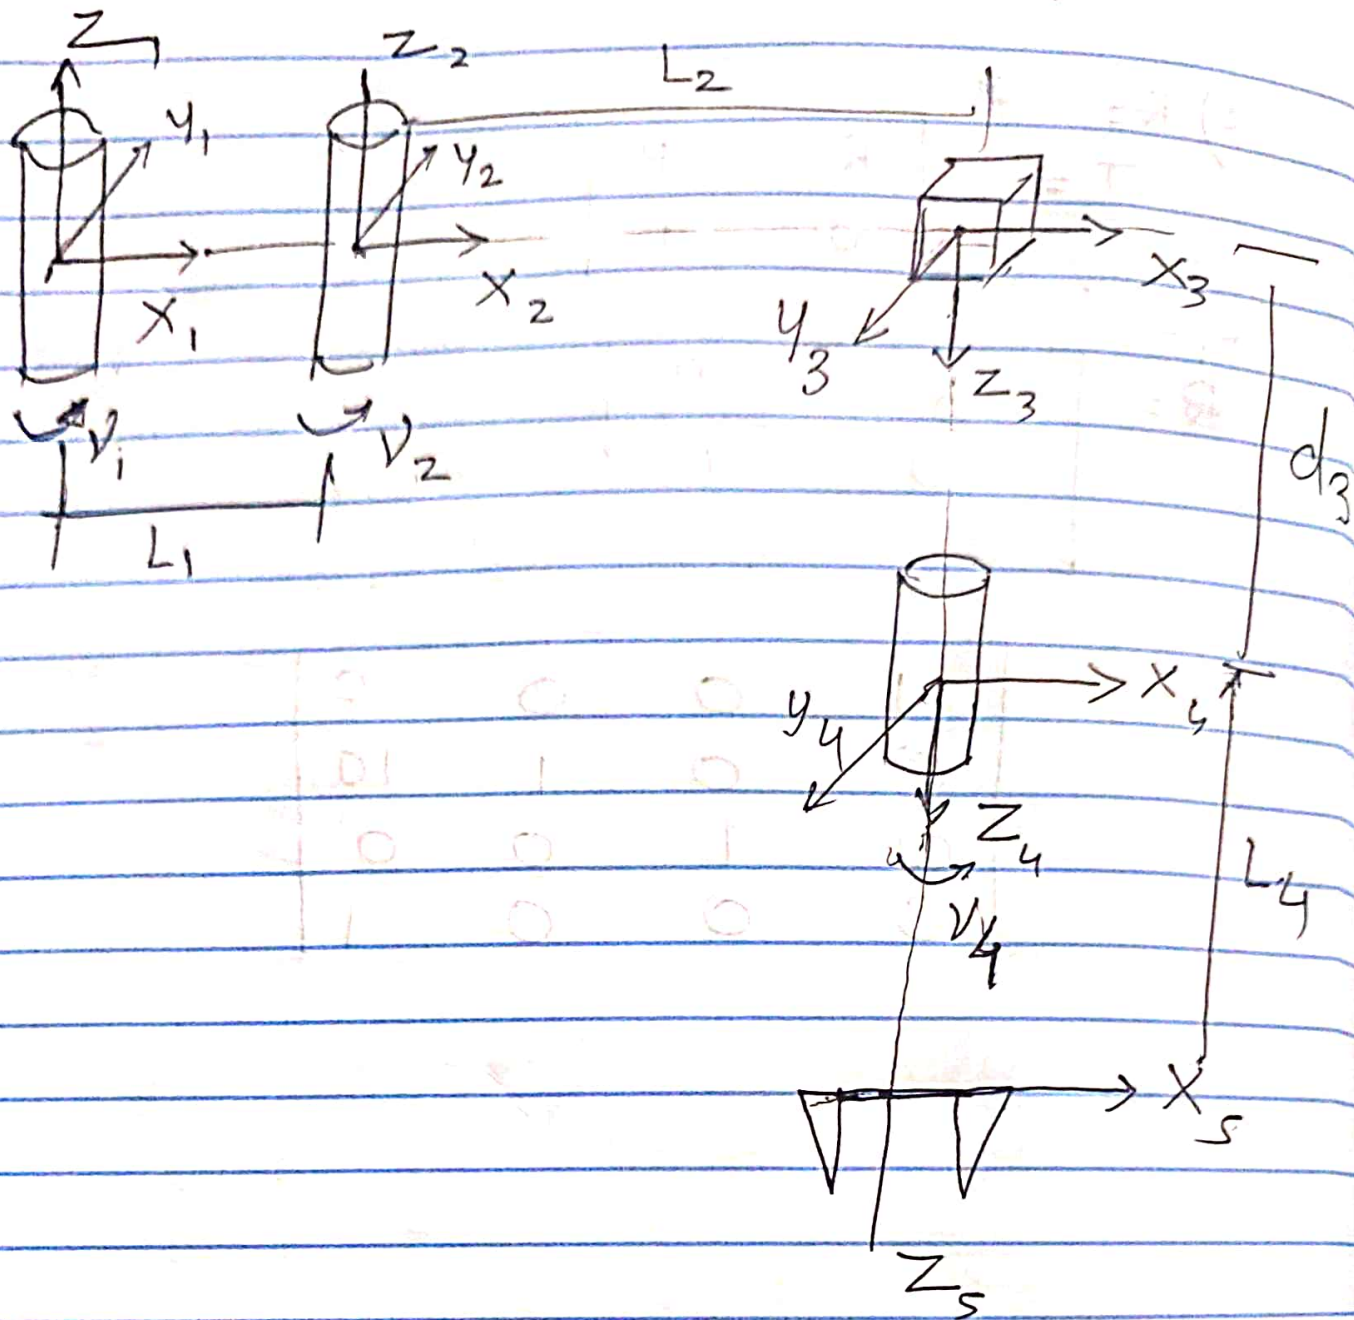 Z1
Z2
L2
y1
y2
X1
X2
X3
y3
Z3
V1
V2
L1
d3
X4
y4
Z4
L4
V4
X5
Z5